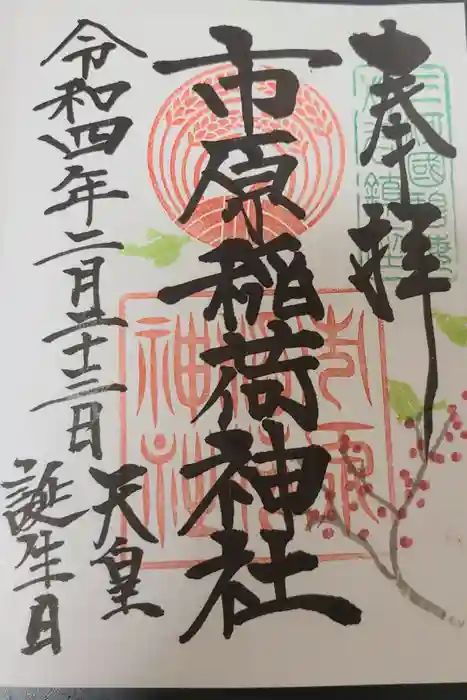 奉拝
市原稲荷神社
令和四年二月二十三日
天皇
誕生日
市原
稲荷
神社